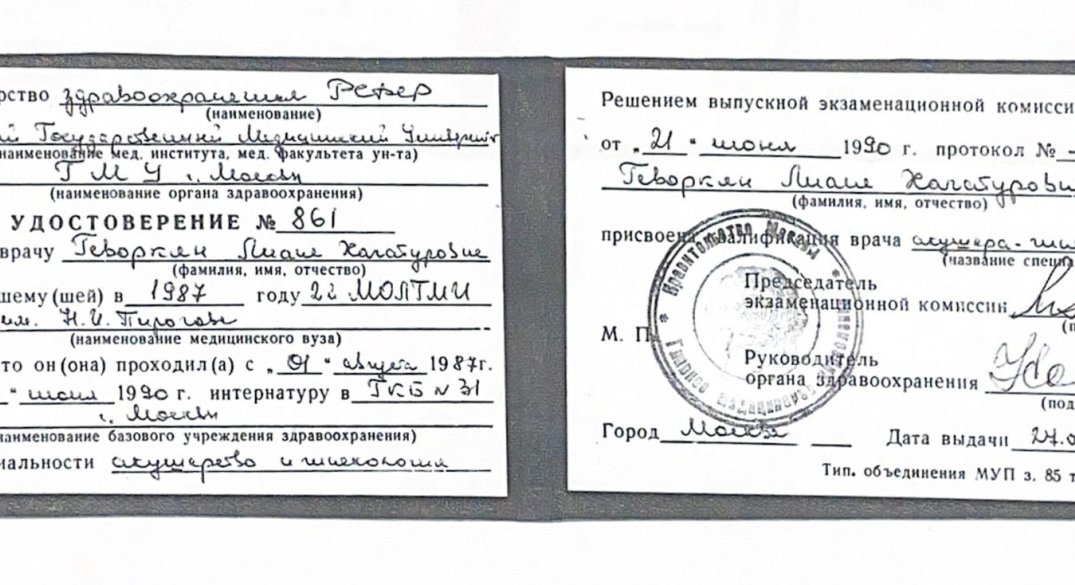 рство здравоохранения РСФСР
(наименование)
й Государственный Медицинский Университет
наименование мед. института, мед. факультета ун-та)
ГМУ г. Москвы
(наименование органа здравоохранения)
УДОСТОВЕРЕНИЕ № 861
врачу Геворкян Лиане Хачатуровне
(фамилия, имя, отчество)
шему(шей) в 1987 году 2й МОЛГМИ
им. Н.И. Пирогова
(наименование медицинского вуза)
то он(она) проходил(а) с „01" августа 1987г.
" июня 1990 г. интернатуру в ГКБ N 31
г. Москвы
наименование базового учреждения здравоохранения)
иальности акушерство и гинекология
Решением выпускной экзаменационной комисси
от „21" июня 1990 г. протокол №
Геворкян Лиане Хачатуровн
(фамилия, имя, отчество)
присвоена квалификация врача акушера-гине
(название специ
Председатель
экзаменационной комиссии
(п
М. П.
Руководитель
органа здравоохранения
(под
Город Москва Дата выдачи 27.0
Тип. объединения МУП з. 85 т
Правительство Москвы